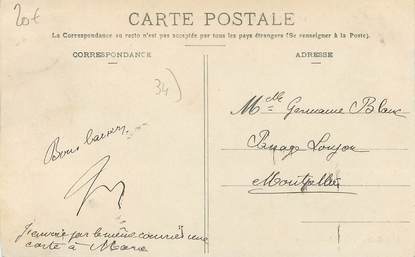 20€
CARTE POSTALE
La Correspondance au recto n'est pas acceptée par tous les pays étrangers (Se renseigner à la Poste).
CORRESPONDANCE
ADRESSE
34)
Mlle Germaine Blanc
Bons baisers
Montpellier
J'envoie par le même courrier une
carte à Marie